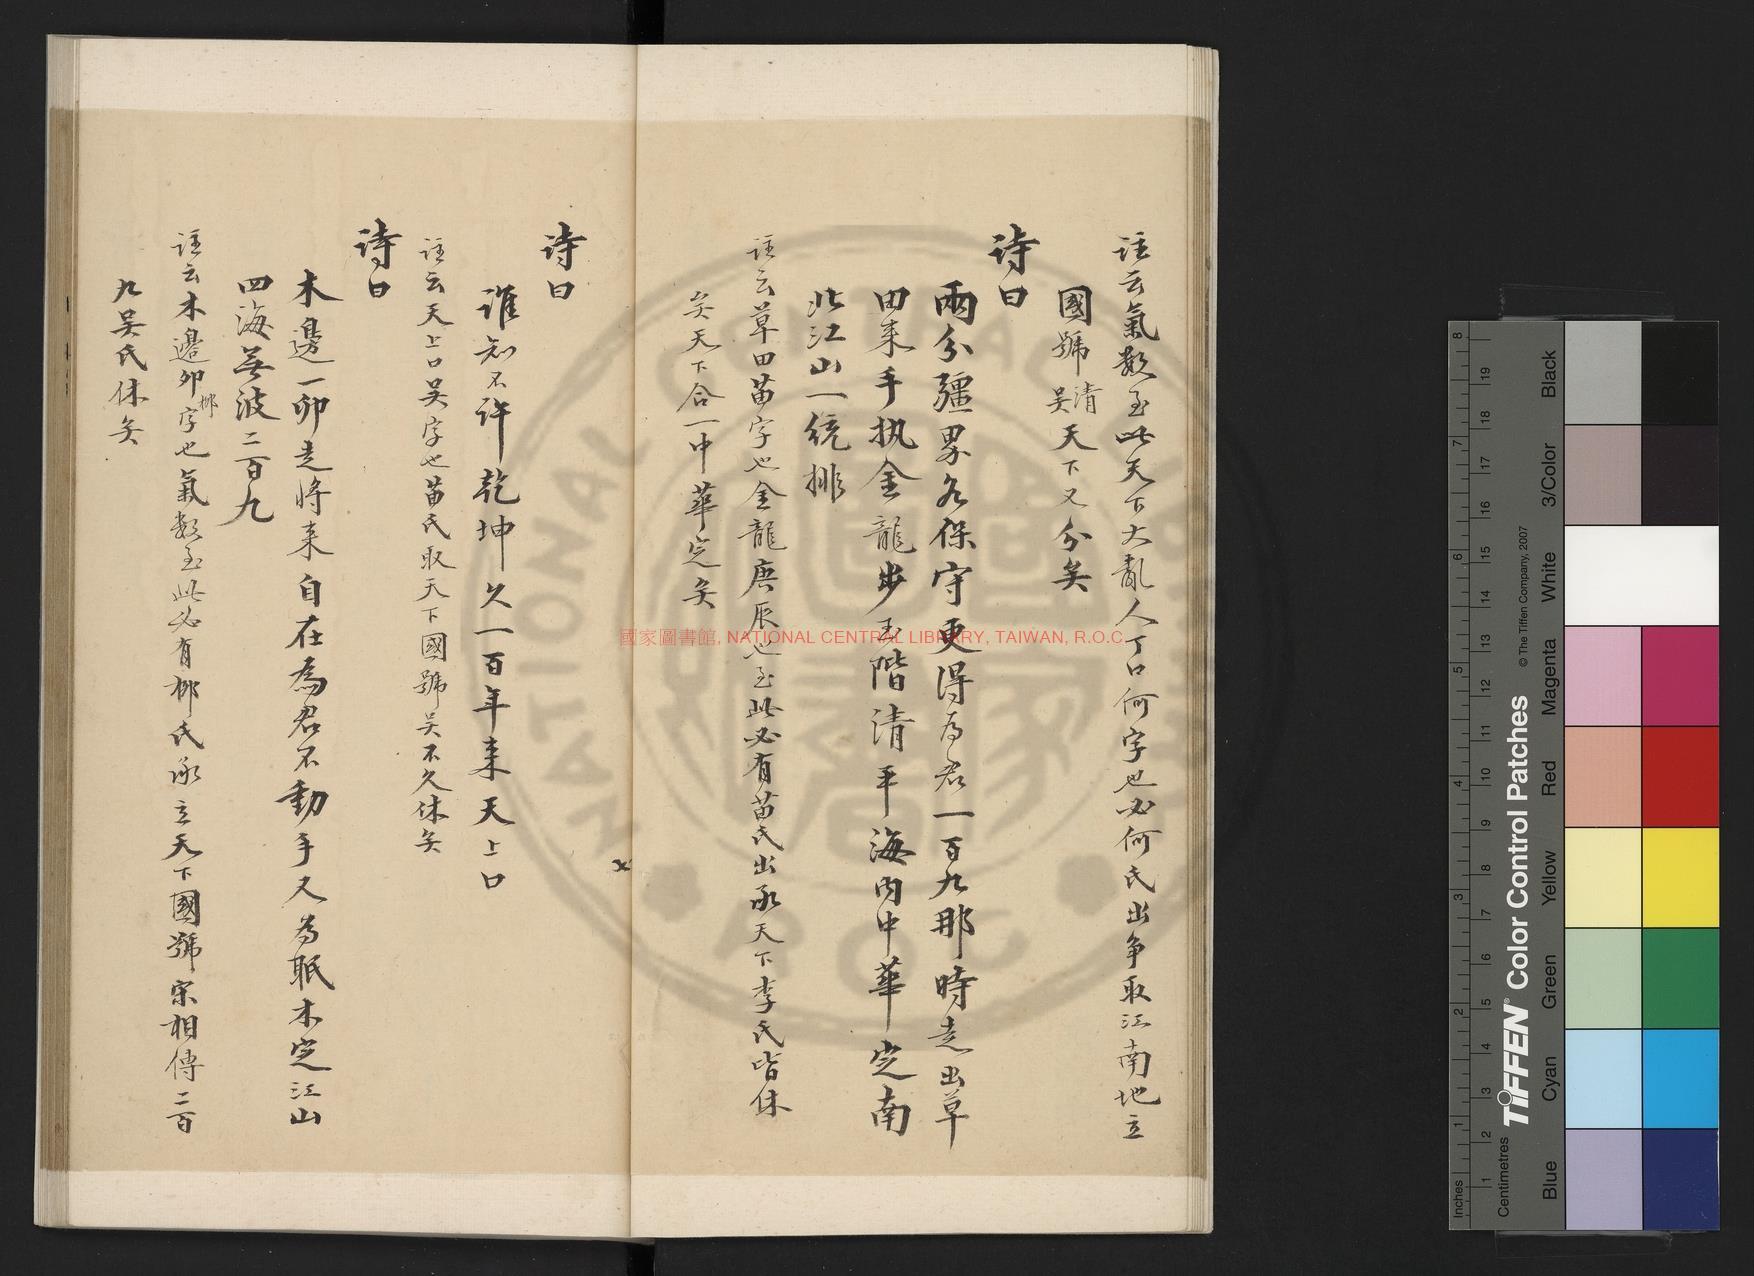 註云氣數至此天下大亂人丁口何字也必何氏出爭取江南地立
國號清吳天下又分矣
诗曰
兩分疆界各保守更得為君一百九那時走出草
田来手执金龍步玉階清平海內中華定南
北江山一统排
註云草田苗字也金龍庚辰也至此必有苗氏出承天下李氏皆休
矣天下合一中華定矣
诗曰
谁知不许乾坤久一百年来天上口
註云天上口吴字也苗氏取天下國號吴不久休矣
诗曰
木邊一卯走将来自在為君不動手又為眠木定江山
四海無波二百九
註云木邊卯柳字也氣數至此必有柳氏承立天下國號宋相傳二百
九吴氏休矣
國家圖書館, NATIONAL CENTRAL LIBRARY, TAIWAN, R.O.C
TIFFEN® Color Control Patches
© The Tiffen Company, 2007
Inches
Centimetres
Blue
Cyan
Green
Yellow
Red
Magenta
White
3/Color
Black